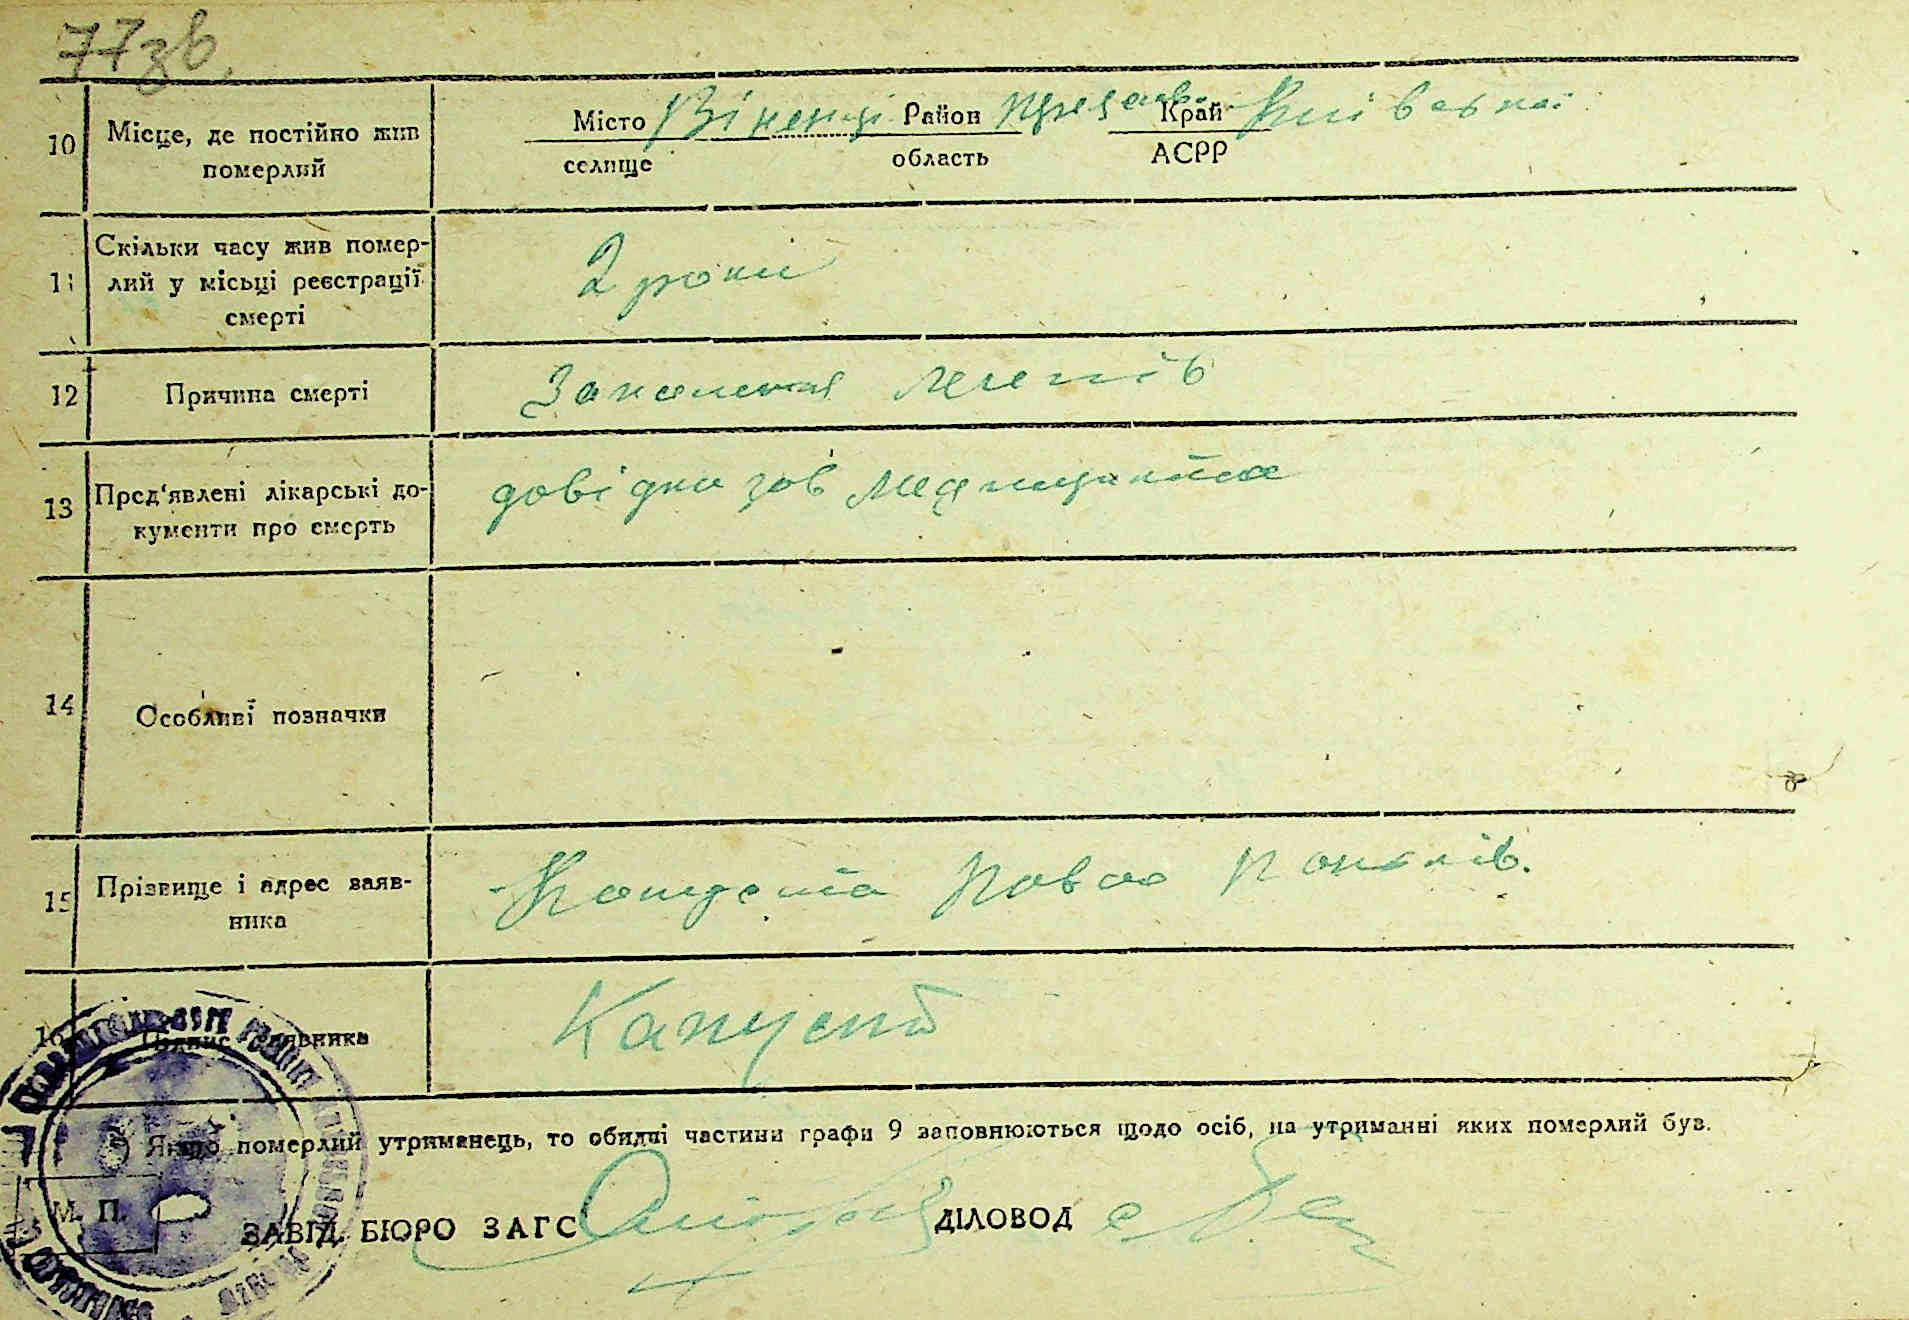 77зв.
10 Місце, де постійно жив померлий
Місто Віненці Район Край Київської
селище область АСРР
11 Скільки часу жив помер-
лий у місьці реєстрації
смерті
2 роки
12 Причина смерті
Запалення легенів
13 Пред'явлені лікарські до-
кументи про смерть
довідка зав медпунктом
14 Особливі позначки
15 Прізвище і адрес заяв-
ника
Капуста Павло
16 Підпис заявника
Капуста
Якщо померлий утриманець, то обидві частини графи 9 заповнюються щодо осіб, на утриманні яких померлий був.
М. П.
ЗАВІД. БЮРО ЗАГС ДІЛОВОД